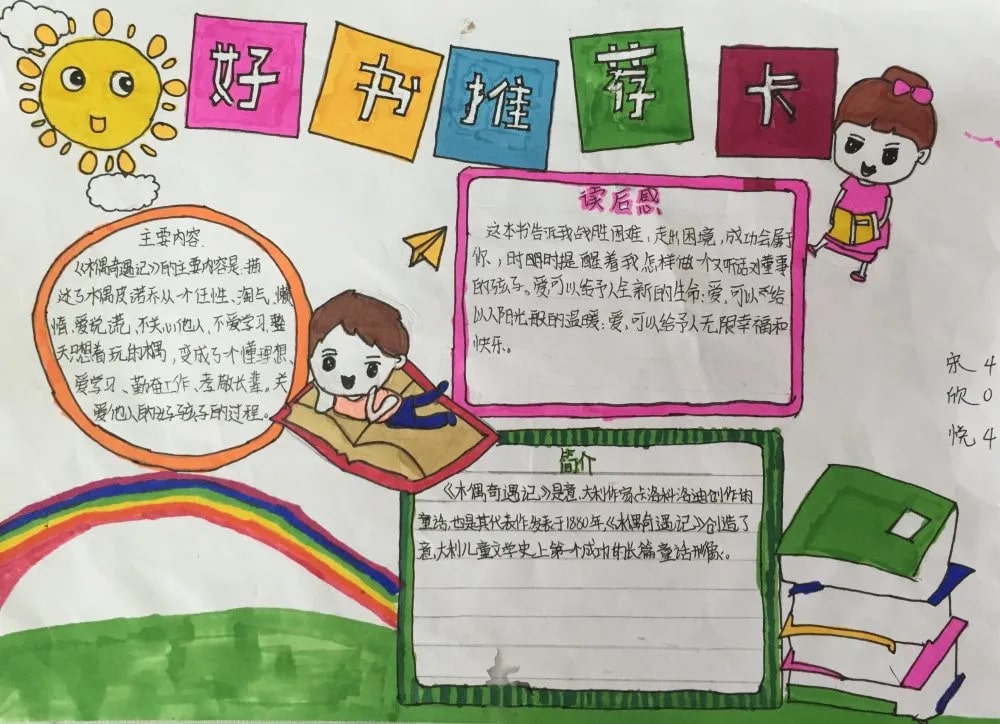 好书推荐卡
主要内容
《木偶奇遇记》的主要内容是:描
述了木偶皮诺乔从一个任性、淘气、懒
惰、爱说谎、不关心他人、不爱学习、整
天只想着玩的木偶,变成了个懂理想、
爱学习、勤奋工作、孝敬长辈、关
爱他人的好孩子的过程。
读后感
这本书告诉我战胜困难,走出困境,成功会属于
你、,时时明提醒着我怎样做一个又听话又懂事
的孩子。爱可以给予人全新的生命:爱,可以给
以人阳光般的温暖:爱,可以给予人无限幸福和
快乐。
简介
《木偶奇遇记》是意大利作家卡洛科洛迪创作的
童话,也是其代表作,发表于1880年,《木偶奇遇记》创造了
意大利儿童文学史上第一个成功的长篇童话形象。
宋 4
欣 0
悦 4